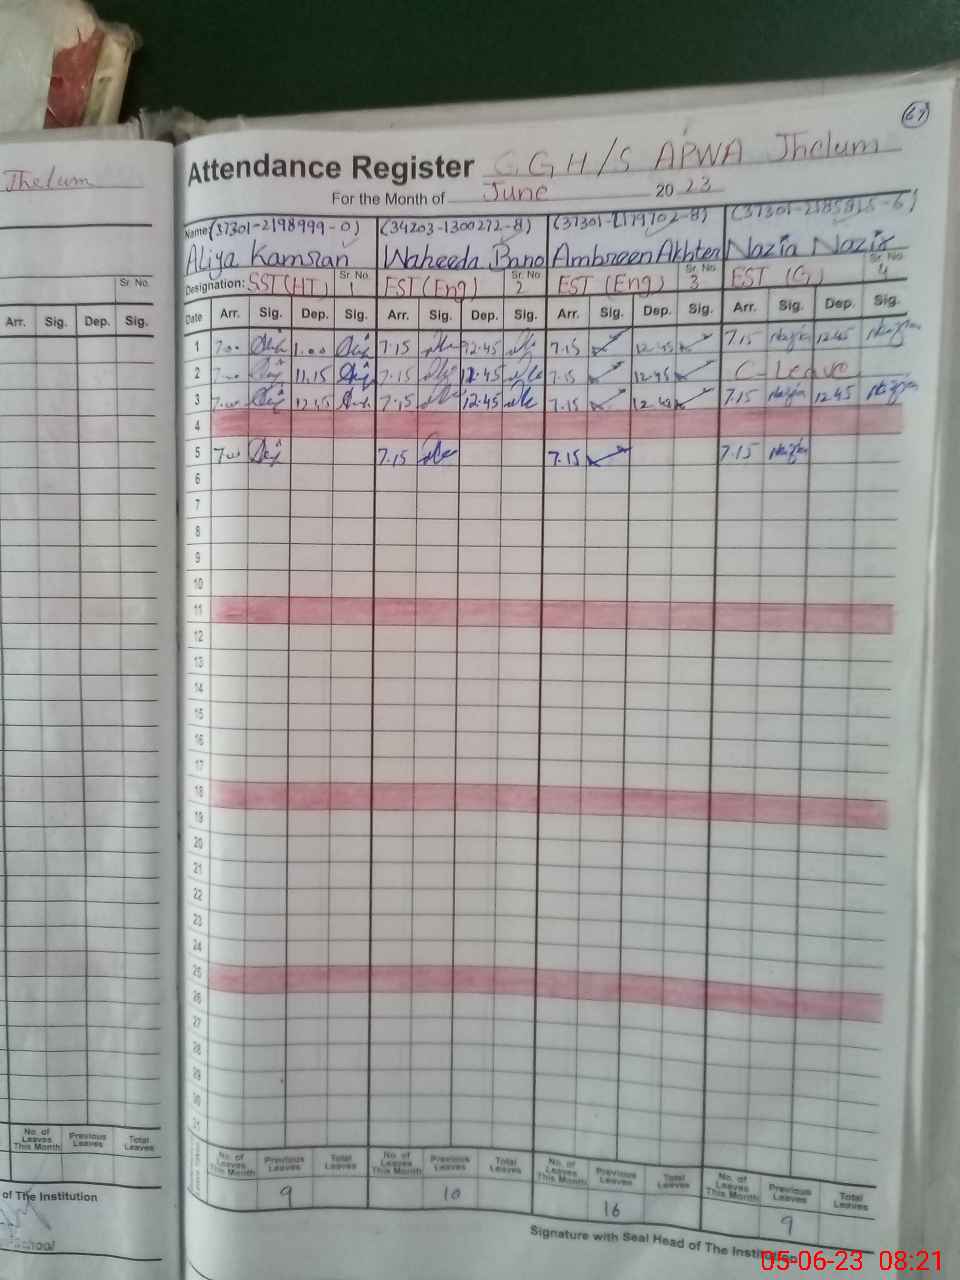 Thelum
Sr. No.
Arr. Sig. Dep. Sig.
No. of Leaves This Month Previous Leaves Total Leaves
of The Institution
School
67
Attendance Register G G H/S APWA Jhelum
For the Month of June 2023
Name: (37301-2198999-0) (34203-1300272-8) (37301-2179702-8)
Aliya Kamran Waheeda Bano Ambreen Akhter Nazia Nazir
Designation: SST(HT) Sr. No. 1 EST (Eng) Sr. No. 2 EST (Eng) Sr. No. 3 EST (G) Sr. No. 4
Date Arr. Sig. Dep. Sig. Arr. Sig. Dep. Sig. Arr. Sig. Dep. Sig. Arr. Sig. Dep. Sig.
1 7.00 1.00 7.15 12.45 7.15 12.45 7.15 Nazia 12.45 Nazia
2 7.00 11.15 7.15 12.45 7.15 12.45 C-Leave
3 7.00 12.45 7.15 12.45 7.15 12.45 7.15 Nazia 12.45 Nazia
4
5 7.00 7.15 7.15 7.15 Nazia
6
7
8
9
10
11
12
13
14
15
16
17
18
19
20
21
22
23
24
25
26
27
28
29
30
31
No. of Leaves This Month Previous Leaves Total Leaves No. of Leaves This Month Previous Leaves Total Leaves No. of Leaves This Month Previous Leaves Total Leaves No. of Leaves This Month Previous Leaves Total Leaves
9 10 16 9
Signature with Seal Head of The Institution
05-06-23 08:21